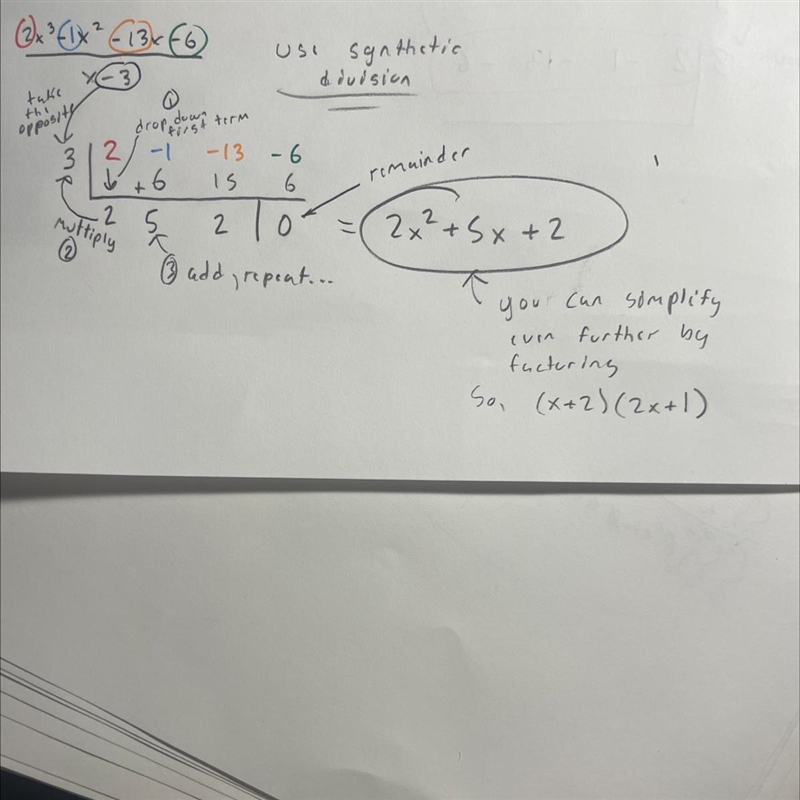 2x³ -1x² -13x -6
x -3
use synthetic
division
take
the
opposite
①
drop down
first term
3 | 2 -1 -13 -6
↓ +6 15 6
2 5 2 | 0
remainder
= 2x² + 5x + 2
multiply
②
③ add, repeat...
you can simplify
even further by
factoring
So, (x+2)(2x+1)